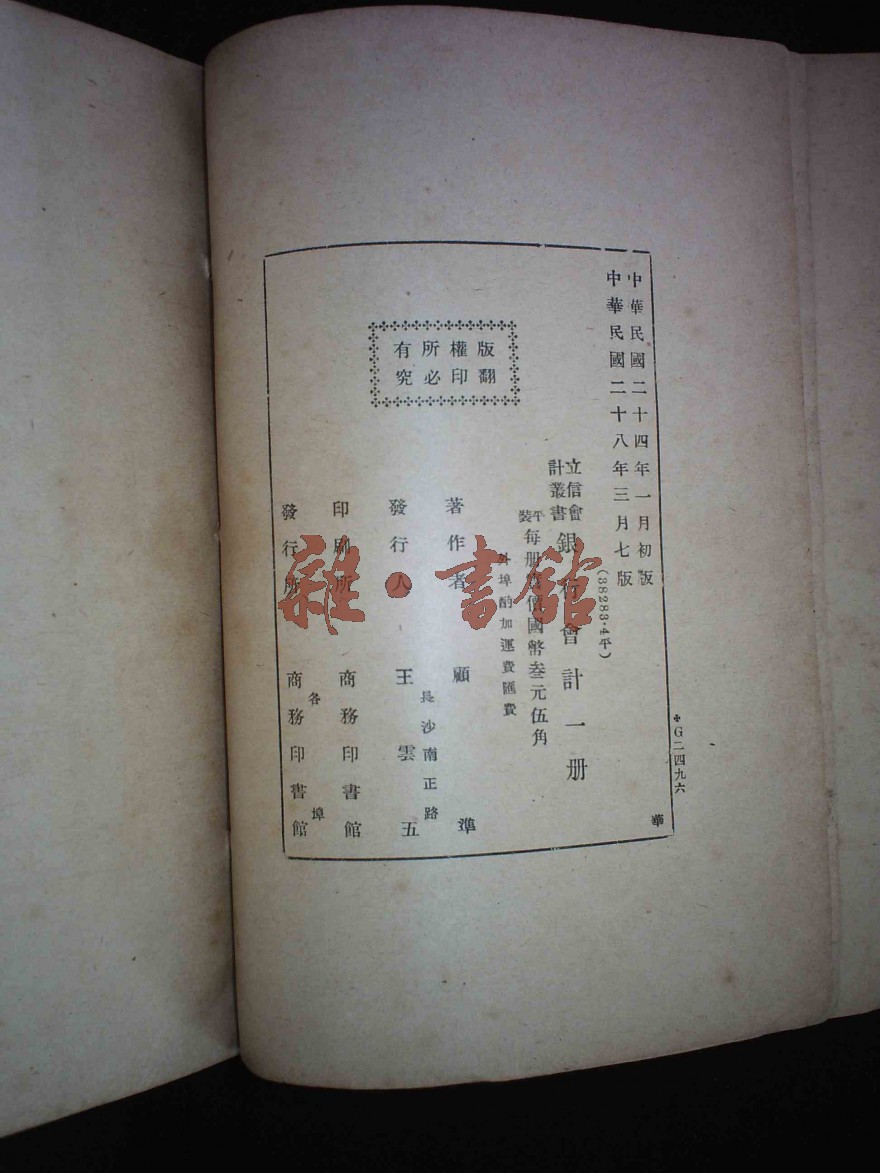 中華民國二十四年一月初版
中華民國二十八年三月七版
(38283·4平)
立信會計叢書
銀行會計一册
平裝
每册實價國幣叁元伍角
外埠酌加運費匯費
版權所有
翻印必究
著作者 顧準
長沙南正路
發行人 王雲五
印刷所 商務印書館
各埠
發行所 商務印書館
G二四九六
華
雜·書館